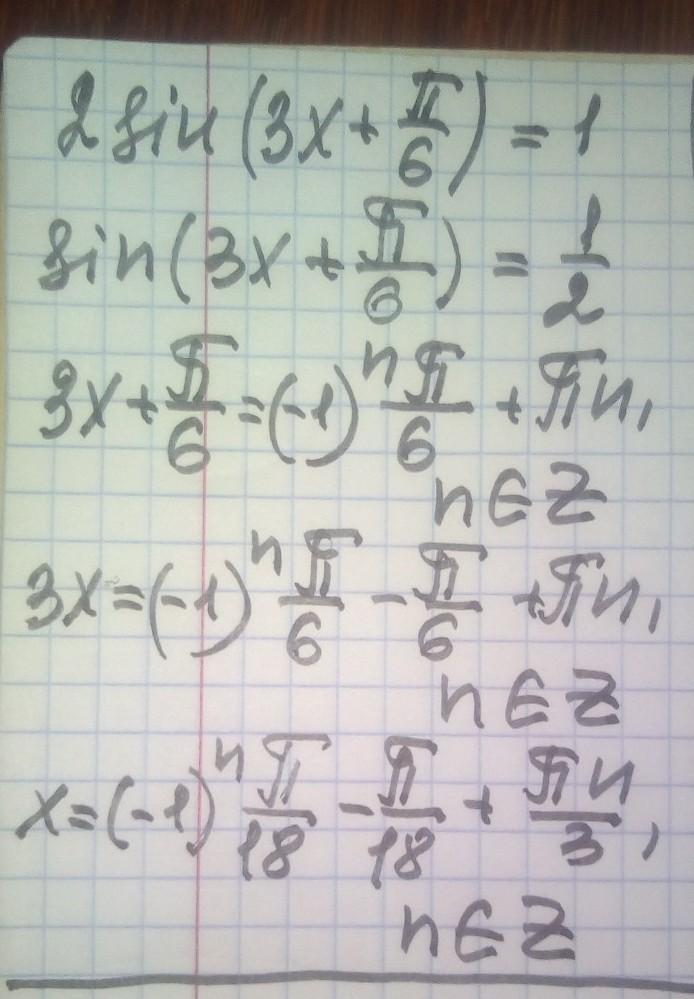 2 sin (3x + π/6) = 1
sin (3x + π/6) = 1/2
3x + π/6 = (-1)ⁿ π/6 + πn,
n ∈ Z
3x = (-1)ⁿ π/6 - π/6 + πn,
n ∈ Z
x = (-1)ⁿ π/18 - π/18 + πn/3,
n ∈ Z